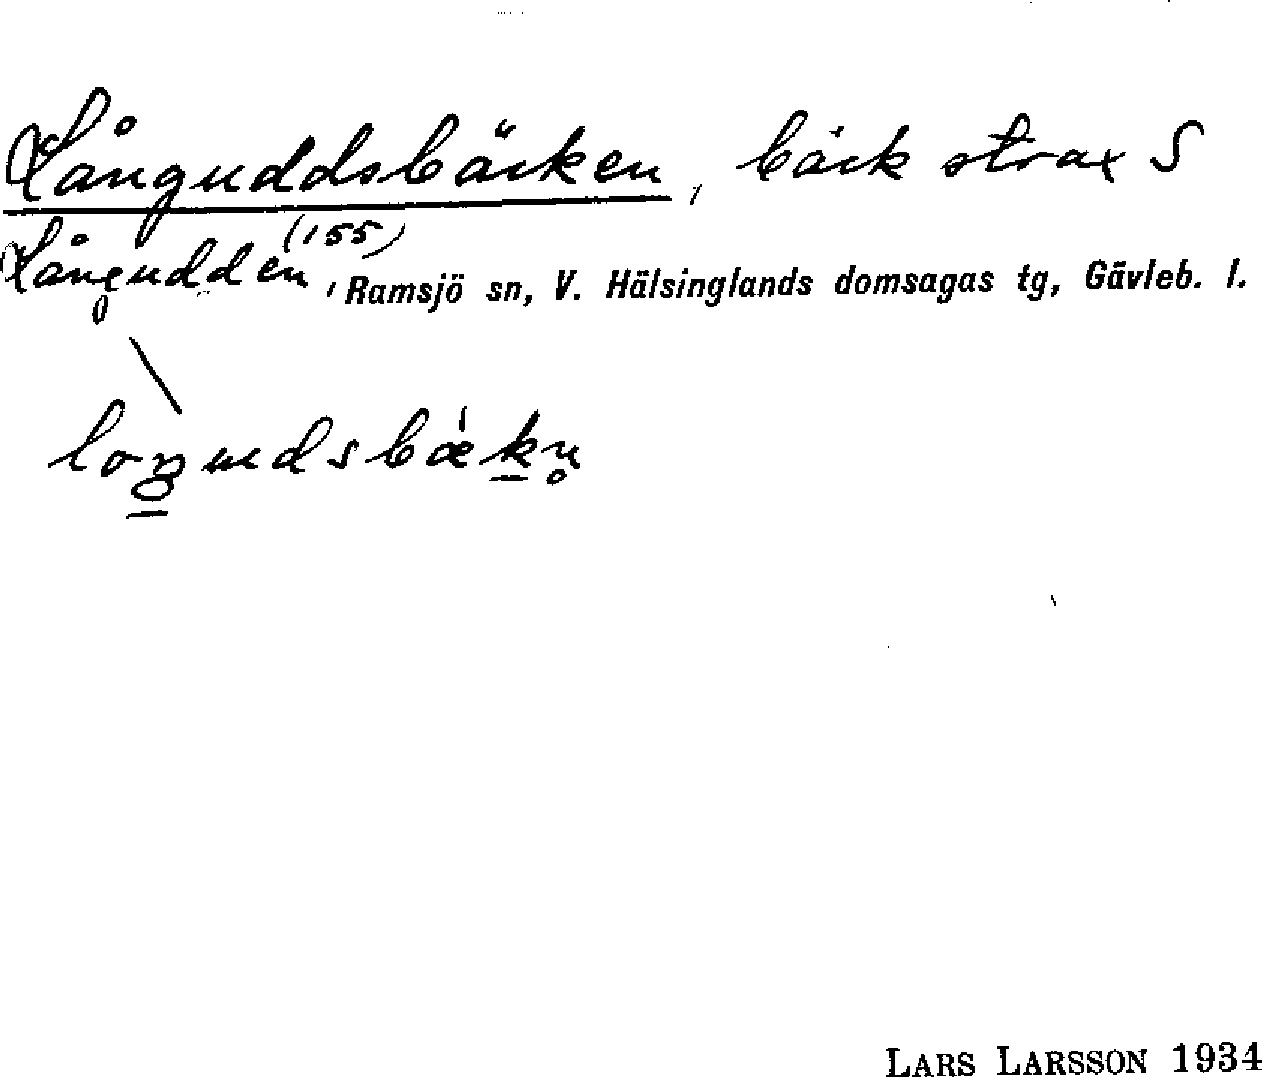 Långuddsbäcken, bäck strax S
Långudden (155), Ramsjö sn, V. Hälsinglands domsagas tg, Gävleb. l.
\
loŋudsbækn̥
LARS LARSSON 1934